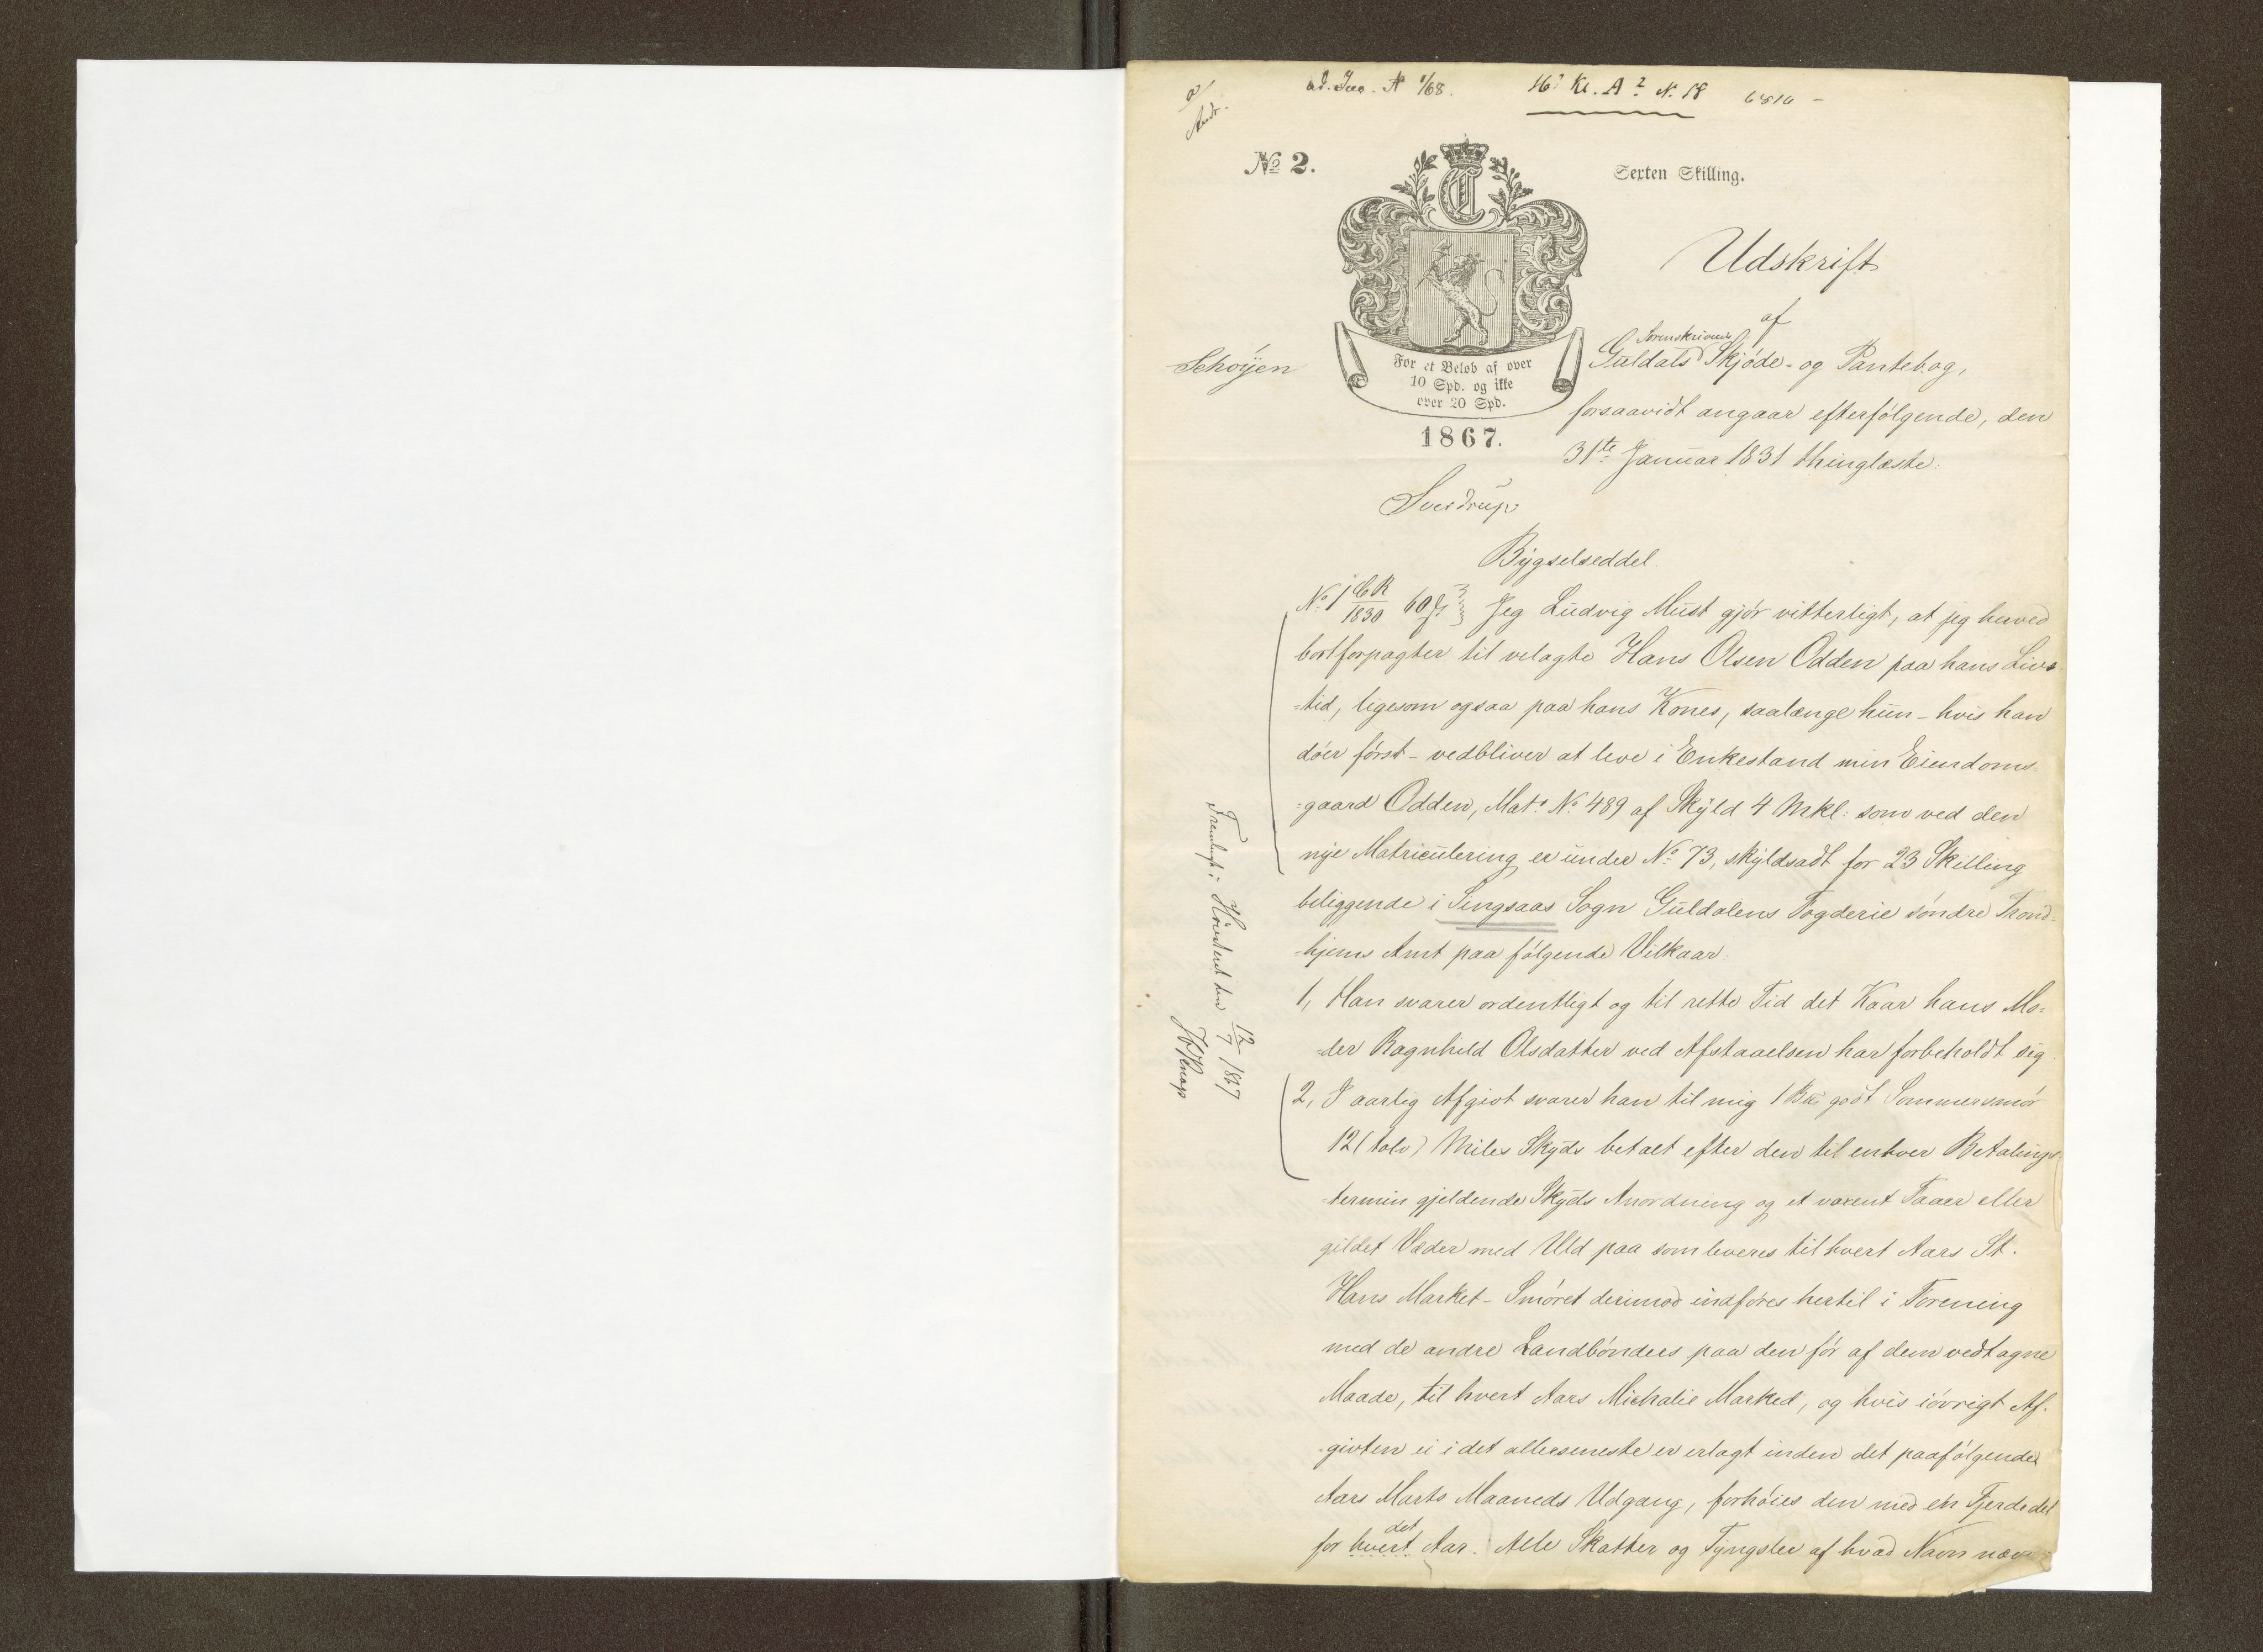 ad. Jno. A 1/68. 16? Kl. A 2 N. 18 6810 –
No 2.
Sexten Skilling.
Udskrift
af
Sorenskriveri
Guldals Skjøde- og Pantebog,
Schøyen
For et Beløb af over
10 Spd. og ikke
over 20 Spd.
1867.
forsaavidt angaar efterfølgende, den
31te Januar 1831 thinglæste:
Sverdrup
Bygselseddel.
No 1 Cb R 1830 60 Jeg Ludvig Must gjør vitterligt, at jeg herved
bortforpagter til velagte Hans Olsen Odden paa hans Livs-
-tid, ligesom ogsaa paa hans Kones, saalænge hun – hvis han
døer først – vedbliver at leve i Enkestand min Eiendoms-
-gaard Odden, Mat: No 489 af Skyld 4 Mkl: som ved den
nye Matriculering er under No 73, skyldsadt for 23 Skilling
beliggende i Singsaas Sogn Guldalens Fogderie søndre Trond-
-hjems Amt paa følgende Vilkaar:
1, Han svarer ordentligt og til rette Tid det Kaar hans Mo-
-der Ragnhild Olsdatter ved Afstaaelsen har forbeholdt sig
2, I aarlig Afgivt svarer han til mig 1 Bu: godt Sommersmør
12 (tolv) Miles Skyds betalt efter den til enhver Betalings-
-termin gjeldende Skyds Anordning og et voxent Faaer eller
gildet Væder med Uld paa som leveres til hvert Aars St.
Hans Market – Smøret derimod indføres hertil i Forening
med de andre Landbønders paa den før af dem vedtagne
Maade, til hvert Aars Michalie Marked, og hvis iøvrigt Af-
-givten ei i det allerseneste er erlagt inden det paafølgende
Aars Marts Maaneds Udgang, forhøies den med én Fjerdedel
det
for hvert Aar. Alle Skatter og Tyngsler af hvad Navn næv-
Fremlagt i Houstent den 12/7 1867